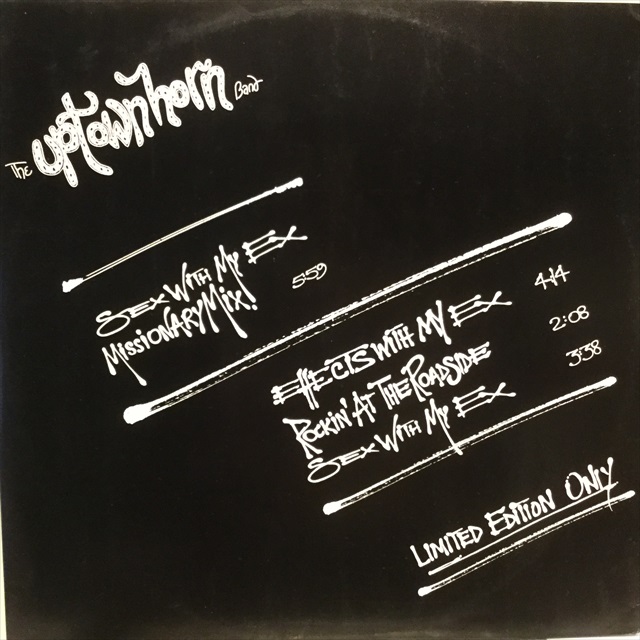 The uptownhorn Band
Sex With My Ex
Missionary Mix! 5:59
Effects With My Ex 4:14
Rockin' At The Roadside 2:08
Sex With My Ex 3:38
Limited Edition Only